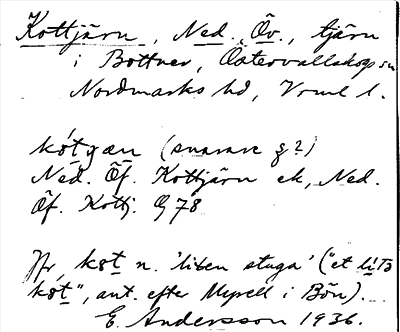 Kottjärn, Ned. Öv., tjärn
i Bottnar, Östervallskogs sn
Nordmarks hd, Vrml l.
kótyæn (snarare g?)
Ned. Öf. Kottjärn ek, Ned.
Öf. Kottj. G 78
Jfr kɷt n. 'liten stuga' ("et lítə
kɷt", ant. efter Myrell i Bön).
E. Andersson 1936.